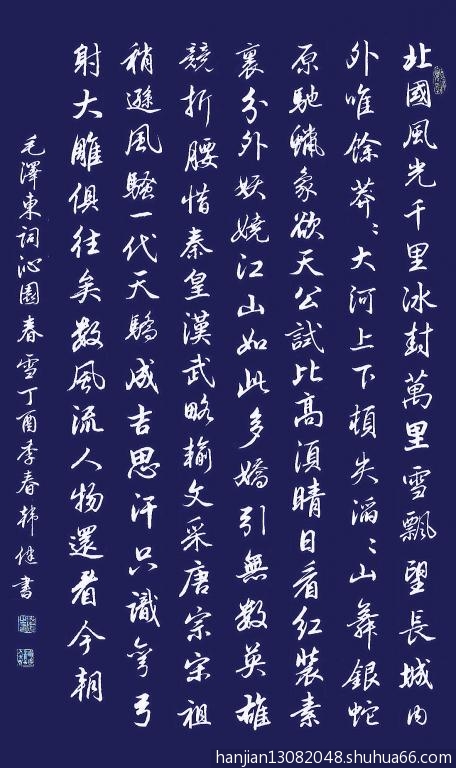 北國風光千里冰封萬里雪飄望長城內
外唯餘莽〻大河上下頓失滔〻山舞銀蛇
原馳蠟象欲天公試比高須晴日看紅裝素
裹分外妖嬈江山如此多嬌引無數英雄
競折腰惜秦皇漢武略輸文采唐宗宋祖
稍遜風騷一代天驕成吉思汗只識彎弓
射大雕俱往矣數風流人物還看今朝
毛澤東詞沁園春雪丁酉季春韓健書
hanjian13082048.shuhua66.com